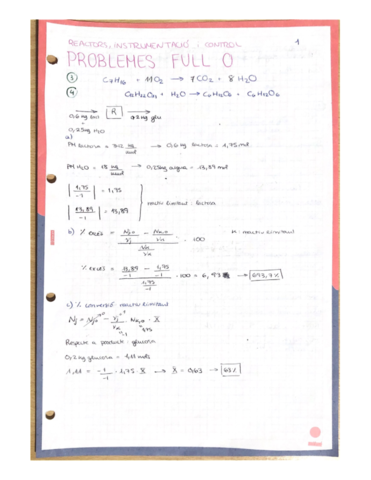 REACTORS, INSTRUMENTACIÓ i CONTROL 1
PROBLEMES FULL 0
③ C7H16 + 11O2 → 7CO2 + 8H2O
④ C12H22O11 + H2O → C6H12O6 + C6H12O6
→ R →
0,6 kg 0,2 kg glu
0,25 kg H2O
a)
PM lactosa = 342 kg/kmol → 0,6 kg lactosa = 1,75 mol
PM H2O = 18 kg/kmol → 0,25 kg aigua = 13,89 mol
| 1,75 / -1 | = 1,75
| 13,89 / -1 | = 13,89
reactiu limitant: lactosa
b) % excés = 100 n: reactiu limitant
% excés = 13,89 / -1 - 1,75 / -1 / 1,75 / -1 · 100 = 6,937 → 693,7%
c) % conversió: reactiu limitant
Respecte a producte: glucosa
0,2 kg glucosa = 1,11 mols
1,11 = -1 / -1 · 1,75 · X → X = 0,63 → 63%